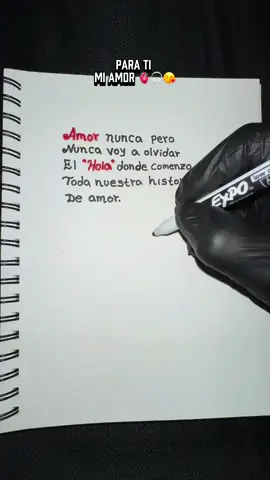 PARA TI
MI AMOR
Amor nunca pero
Nunca voy a olvidar
El "Hola" donde comenzo
Toda nuestra histor
De amor.
EXPO